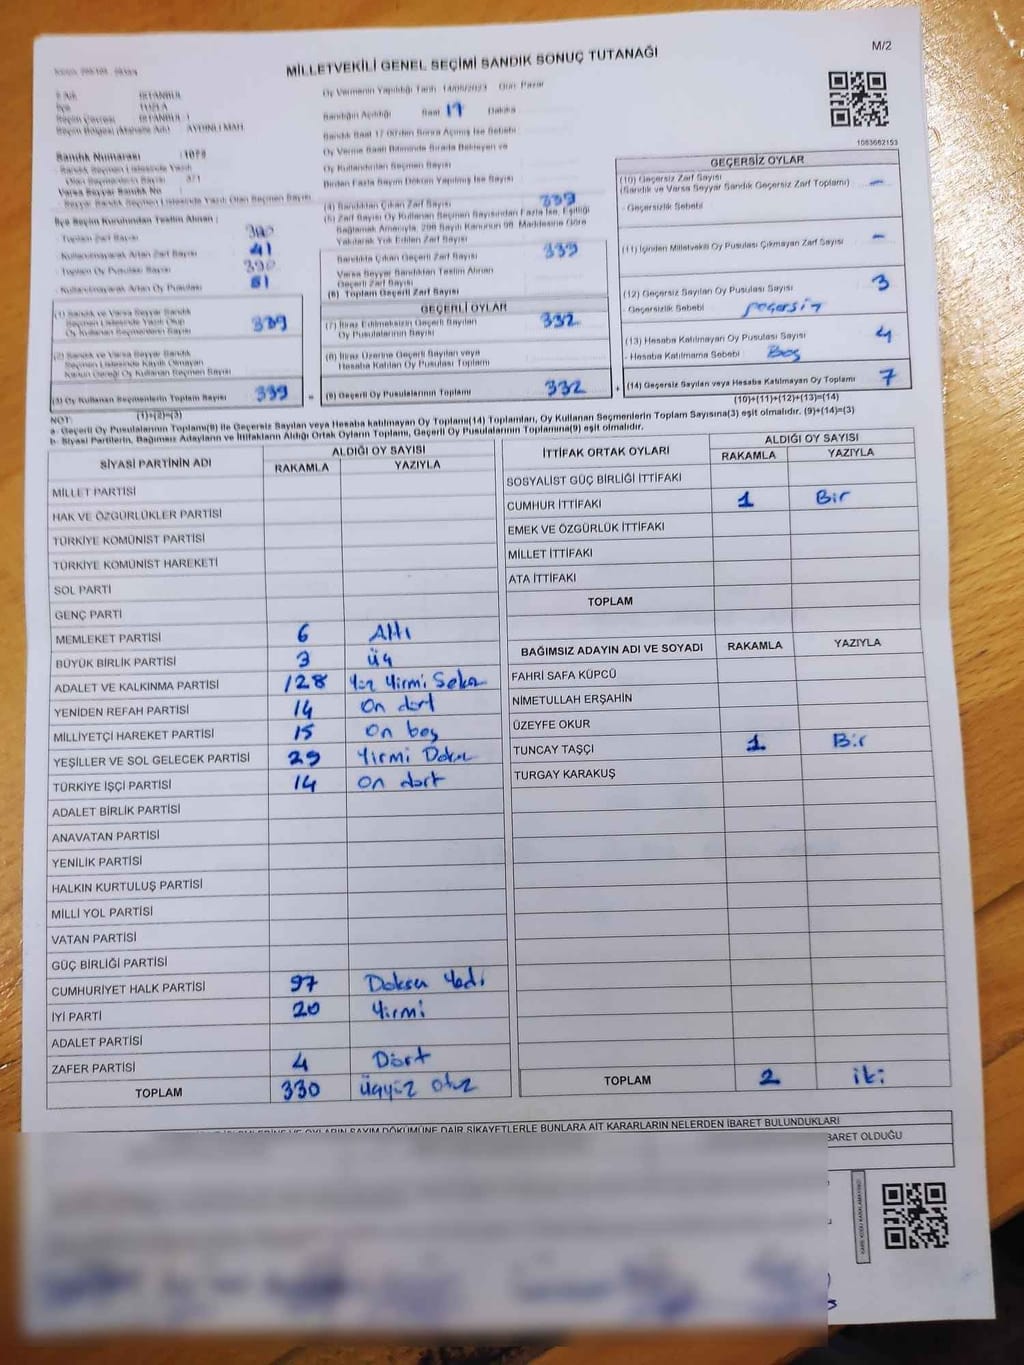 M/2
MİLLETVEKİLİ GENEL SEÇİMİ SANDIK SONUÇ TUTANAĞI
Oy Vermenin Yapıldığı Tarih 14/05/2023 Gün Pazar
İli Adı İSTANBUL
İlçe TUZLA
Seçim Çevresi İSTANBUL 1
AYDINLI MAH.
Sandığın Açıldığı Saat 17 Dakika
Sandık Saat 17.00'den Sonra Açılmış İse Sebebi
Oy Verme Saati Bitiminde Sırada Bekleyen ve
Oy Kullandırılan Seçmen Sayısı
Birden Fazla Sayım Döküm Yapılmış İse Sayısı
1083662153
Sandık Numarası
Sandık Seçmen Listesinde Yazılı
Olan Seçmenlerin Sayısı 371
Varsa Seyyar Sandık No
Seyyar Sandık Seçmen Listesinde Yazılı Olan Seçmen Sayısı
İlçe Seçim Kurulundan Teslim Alınan :
- Toplam Zarf Sayısı
- Kullanılmayarak Artan Zarf Sayısı 41
- Toplam Oy Pusulası Sayısı 390
- Kullanılmayarak Artan Oy Pusulası
(1) Sandık ve Varsa Seyyar Sandık
Seçmen Listesinde Yazılı Olup
Oy Kullanan Seçmenlerin Sayısı 339
(2) Sandık ve Varsa Seyyar Sandık
Seçmen Listesinde Kayıtlı Olmayan
Kanun Gereği Oy Kullanan Seçmen Sayısı
(3) Oy Kullanan Seçmenlerin Toplam Sayısı 339
(1)+(2)=(3)
(4) Sandıktan Çıkan Zarf Sayısı 339
(5) Zarf Sayısı Oy Kullanan Seçmen Sayısından Fazla İse, Eşitliği
Sağlamak Amacıyla, 298 Sayılı Kanunun 98. Maddesine Göre
Yakılarak Yok Edilen Zarf Sayısı
Sandıkta Çıkan Geçerli Zarf Sayısı 339
Varsa Seyyar Sandıktan Teslim Alınan
Geçerli Zarf Sayısı
(6) Toplam Geçerli Zarf Sayısı
GEÇERLİ OYLAR
(7) İtiraz Edilmeksizin Geçerli Sayılan
Oy Pusulasının Sayısı 332
(8) İtiraz Üzerine Geçerli Sayılan veya
Hesaba Katılan Oy Pusulası Toplamı
= (9) Geçerli Oy Pusulasının Toplamı 332
GEÇERSİZ OYLAR
(10) Geçersiz Zarf Sayısı
(Sandık ve Varsa Seyyar Sandık Geçersiz Zarf Toplamı) -
- Geçersizlik Sebebi
(11) İçinden Milletvekili Oy Pusulası Çıkmayan Zarf Sayısı -
(12) Geçersiz Sayılan Oy Pusulası Sayısı 3
- Geçersizlik Sebebi geçersiz
(13) Hesaba Katılmayan Oy Pusulası Sayısı 4
- Hesaba Katılmama Sebebi Boş
+ (14) Geçersiz Sayılan veya Hesaba Katılmayan Oy Toplamı 7
(10)+(11)+(12)+(13)=(14)
NOT:
a- Geçerli Oy Pusulalarının Toplamı(9) ile Geçersiz Sayılan veya Hesaba katılmayan Oy Toplamı(14) Toplamları, Oy Kullanan Seçmenlerin Toplam Sayısına(3) eşit olmalıdır. (9)+(14)=(3)
b- Siyasi Partilerin, Bağımsız Adayların ve İttifakların Aldığı Ortak Oyların Toplamı, Geçerli Oy Pusulalarının Toplamına(9) eşit olmalıdır.
SİYASİ PARTİNİN ADI ALDIĞI OY SAYISI
RAKAMLA YAZIYLA
MİLLET PARTİSİ
HAK VE ÖZGÜRLÜKLER PARTİSİ
TÜRKİYE KOMÜNİST PARTİSİ
TÜRKİYE KOMÜNİST HAREKETİ
SOL PARTİ
GENÇ PARTİ
MEMLEKET PARTİSİ 6 Altı
BÜYÜK BİRLİK PARTİSİ 3 üç
ADALET VE KALKINMA PARTİSİ 128 Yüz Yirmi Sekiz
YENİDEN REFAH PARTİSİ 14 On dört
MİLLİYETÇİ HAREKET PARTİSİ 15 On beş
YEŞİLLER VE SOL GELECEK PARTİSİ 29 Yirmi Dokuz
TÜRKİYE İŞÇİ PARTİSİ 14 On dört
ADALET BİRLİK PARTİSİ
ANAVATAN PARTİSİ
YENİLİK PARTİSİ
HALKIN KURTULUŞ PARTİSİ
MİLLİ YOL PARTİSİ
VATAN PARTİSİ
GÜÇ BİRLİĞİ PARTİSİ
CUMHURİYET HALK PARTİSİ 97 Doksan Yedi
İYİ PARTİ 20 Yirmi
ADALET PARTİSİ
ZAFER PARTİSİ 4 Dört
TOPLAM 330 Üçyüz Otuz
İTTİFAK ORTAK OYLARI ALDIĞI OY SAYISI
RAKAMLA YAZIYLA
SOSYALİST GÜÇ BİRLİĞİ İTTİFAKI
CUMHUR İTTİFAKI 1 Bir
EMEK VE ÖZGÜRLÜK İTTİFAKI
MİLLET İTTİFAKI
ATA İTTİFAKI
TOPLAM
BAĞIMSIZ ADAYIN ADI VE SOYADI RAKAMLA YAZIYLA
FAHRİ SAFA KÜPCÜ
NİMETULLAH ERŞAHİN
ÜZEYFE OKUR
TUNCAY TAŞÇI 1 Bir
TURGAY KARAKUŞ
TOPLAM 2 iki
OYLARIN SAYIM DÖKÜMÜNE DAİR ŞİKAYETLERLE BUNLARA AİT KARARLARIN NELERDEN İBARET BULUNDUKLARI
İBARET OLDUĞU
KARE KODU KARALAMAYINIZ!